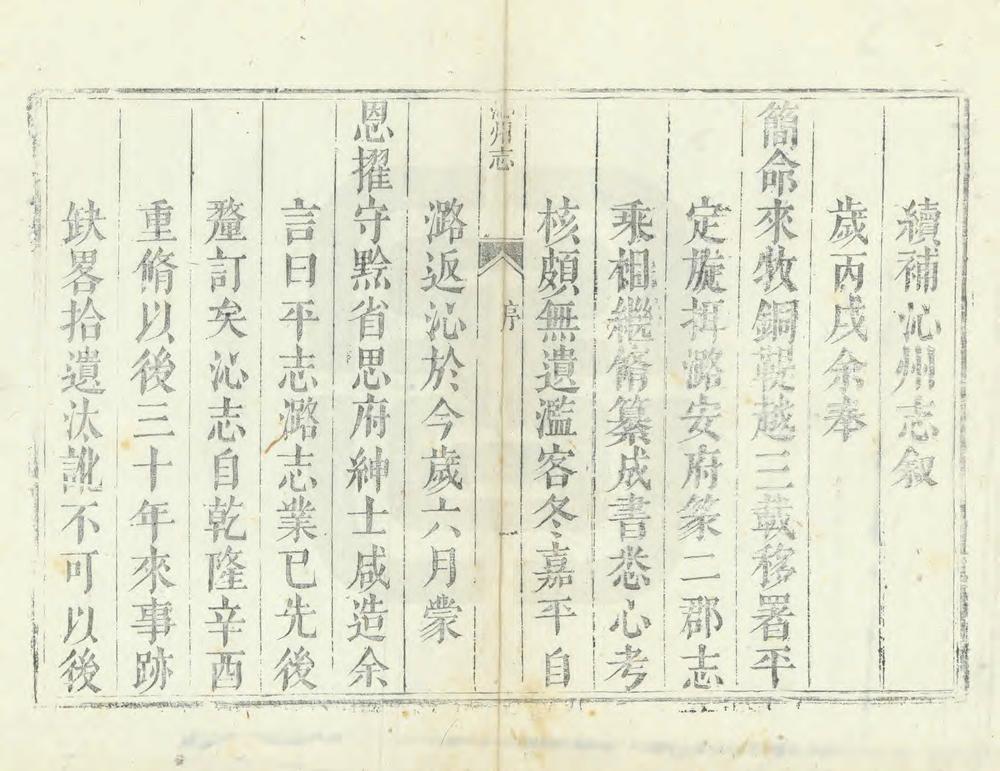 續補沁州志叙
歲丙戌余奉
簡命來牧銅鞮越三載移署平
定旋攝潞安府篆二郡志
乘相繼脩纂成書悉心考
核頗無遺濫客冬嘉平自
沁州志
序
一
潞返沁於今歲六月蒙
恩擢守黔省思府紳士咸造余
言曰平志潞志業已先後
釐訂矣沁志自乾隆辛酉
重脩以後三十年來事跡
缺畧拾遺汰訛不可以後